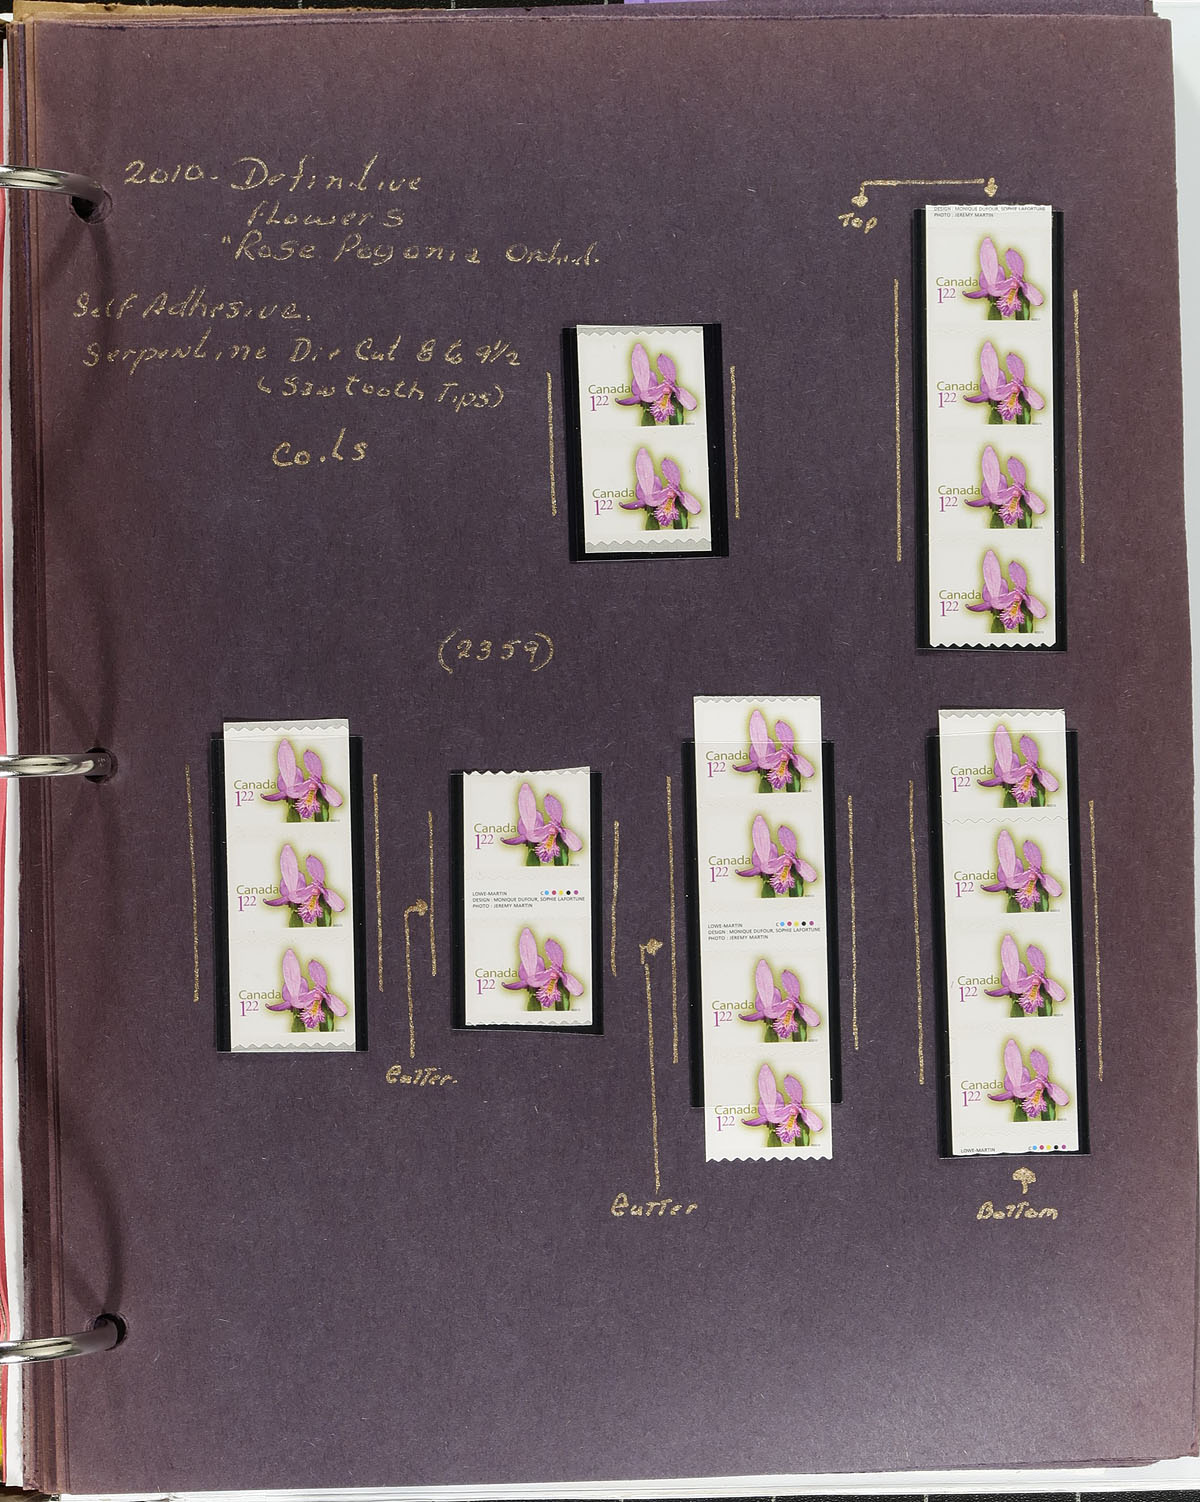 2010- Definitive
Flowers
"Rose Pogonia Orchid.
Self Adhesive.
Serpentine Die Cut 8 to 9½
(Sawtooth Tips)
Coils
Top
DESIGN : MONIQUE DUFOUR, SOPHIE LAFORTUNE
PHOTO : JEREMY MARTIN
Canada
122
Canada
122
Canada
122
Canada
122
Canada
122
Canada
122
(2359)
Canada
122
Canada
122
Canada
122
Canada
122
LOWE-MARTIN
DESIGN : MONIQUE DUFOUR, SOPHIE LAFORTUNE
PHOTO : JEREMY MARTIN
Canada
122
Gutter.
Canada
122
Canada
122
LOWE-MARTIN
DESIGN : MONIQUE DUFOUR, SOPHIE LAFORTUNE
PHOTO : JEREMY MARTIN
Canada
122
Canada
122
Gutter
Canada
122
Canada
122
Canada
122
Canada
122
LOWE-MARTIN
Bottom